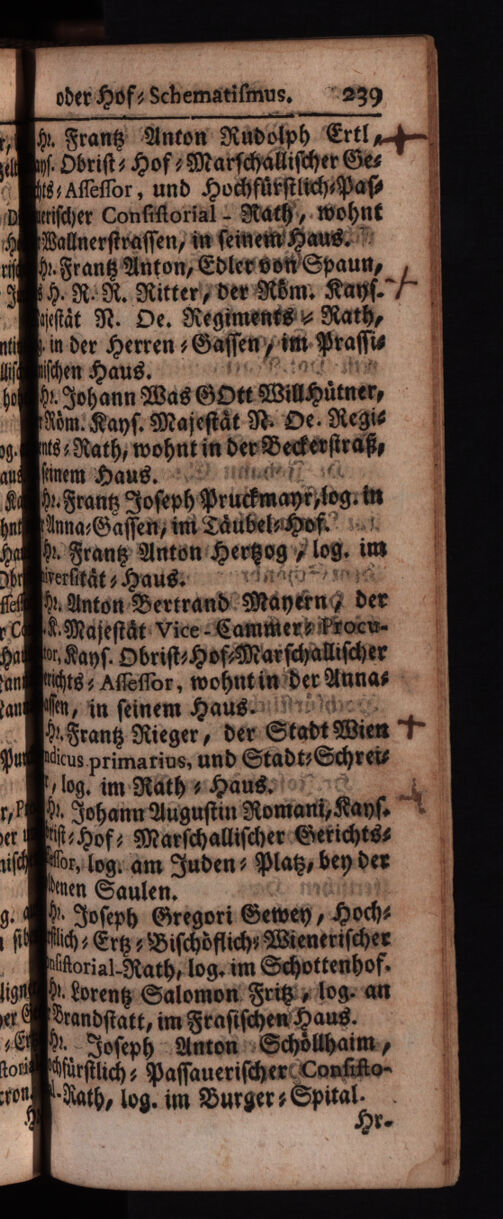 oder Hof-Schematismus. 239
Hr. Frantz Anton Rudolph Ertl,
Obrist-Hof-Marschallischer Ge-
Assessor, und Hochfürstlich-Pas-
Consistorial-Rath, wohnt
Wallnerstrassen, in seinem Haus.
Hr. Frantz Anton, Edler von Spaun,
H. R. R. Ritter, der Röm. Kays.
Majestät N. Oe. Regiments-Rath,
in der Herren-Gassen, im Prassi-
nischen Haus.
Hr. Johann Was GOtt Will Hütner,
Röm. Kays. Majestät N. Oe. Regi-
ments-Rath, wohnt in der Beckerstraß,
seinem Haus.
Hr. Frantz Joseph Pruckmayr, log. in
Anna-Gassen, im Täubel-Hof.
Hr. Frantz Anton Hertzog, log. im
Universität-Haus.
Hr. Anton Bertrand Mayern, der
K. Majestät Vice-Cammer-Procu-
tor, Kays. Obrist-Hof-Marschallischer
Gerichts-Assessor, wohnt in der Anna-
Gassen, in seinem Haus.
Hr. Frantz Rieger, der Stadt Wien
Syndicus primarius, und Stadt-Schrei-
log. im Rath-Haus.
Hr. Johann Augustin Romani, Kays.
Obrist-Hof-Marschallischer Gerichts-
Assessor, log. am Juden-Platz, bey der
Saulen.
Hr. Joseph Gregori Gewey, Hoch-
fürstlich-Ertz-Bischöflich-Wienerischer
Consistorial-Rath, log. im Schottenhof.
Hr. Lorentz Salomon Fritz, log. an
Brandstatt, im Frasischen Haus.
Hr. Joseph Anton Schöllhaim,
Hochfürstlich-Passauerischer Consisto-
Rath, log. im Burger-Spital.
Hr.